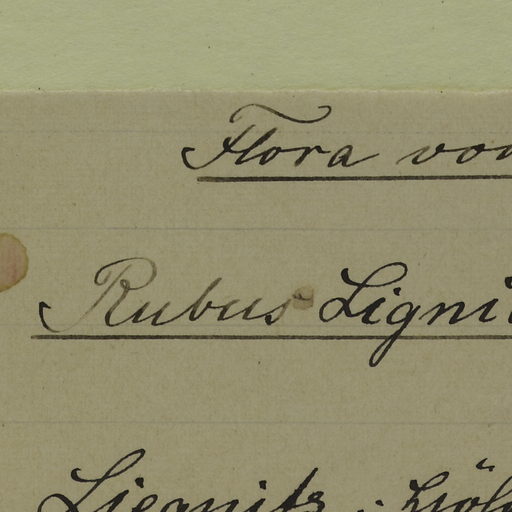 Flora von
Rubus Ligni
Liegnitz :